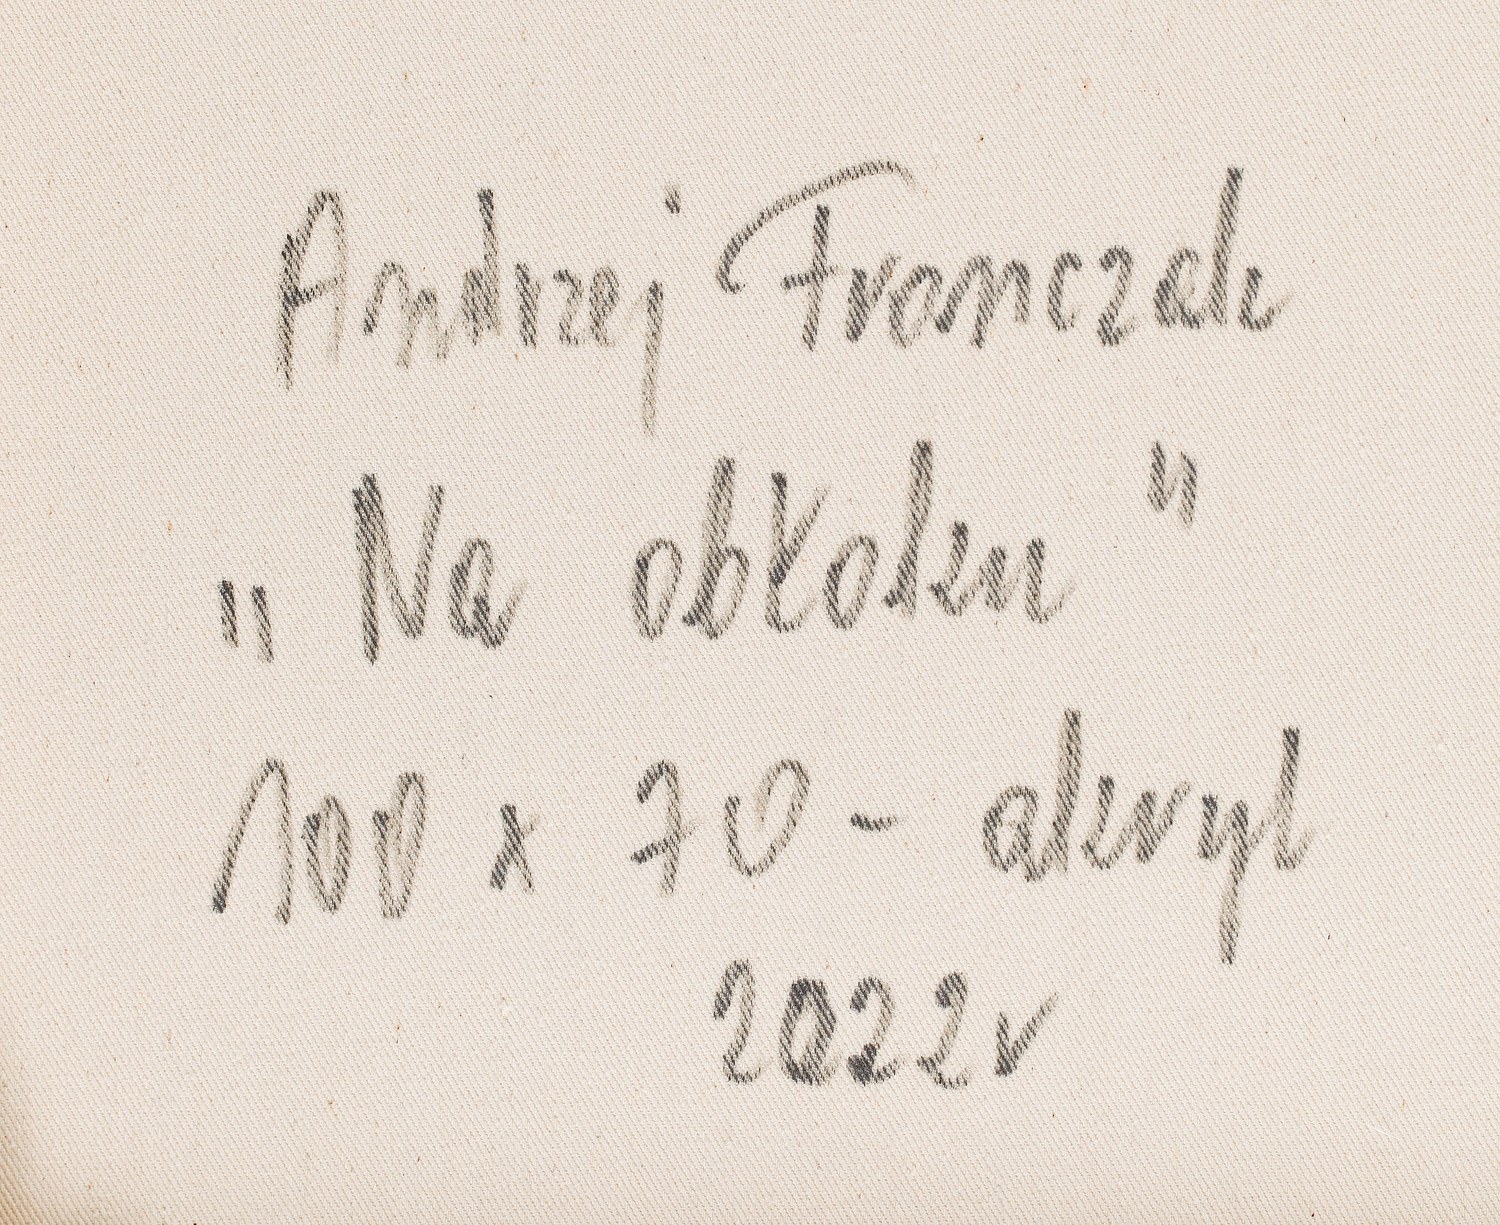 Andrzej Franczak
„Na obłoku"
100 x 70 - akryl
2022r